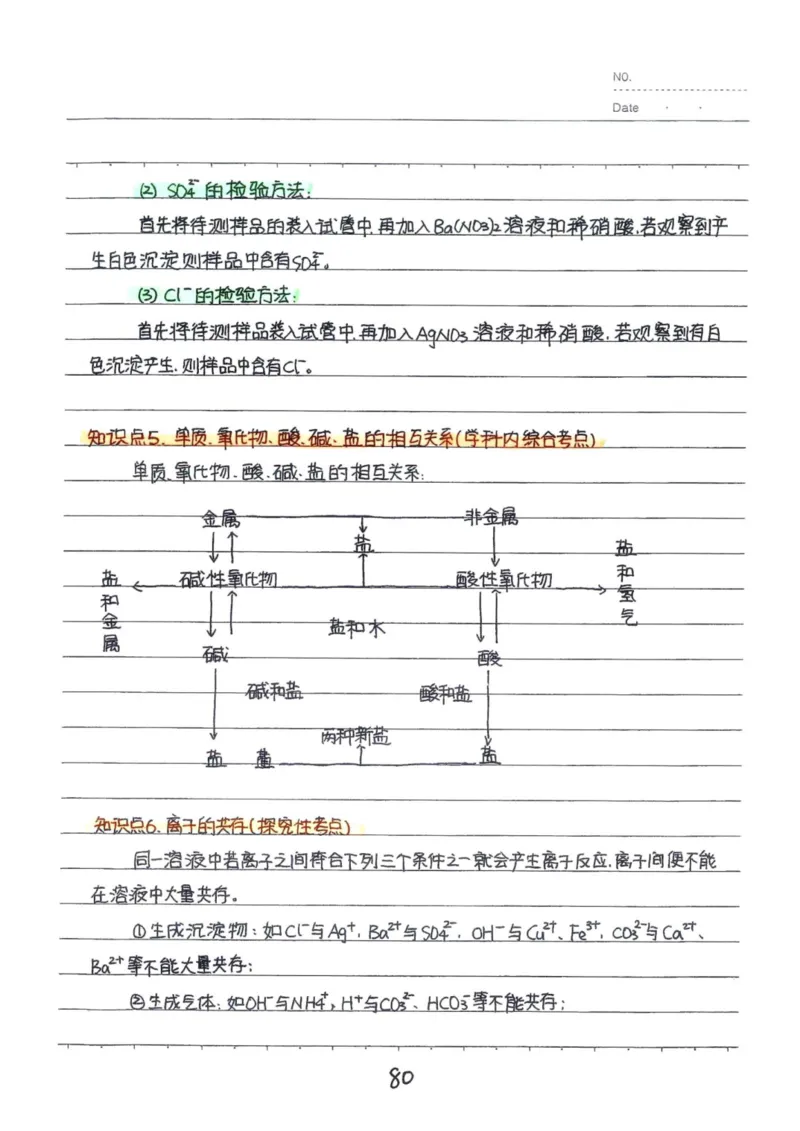 NO.
Date
(2) SO₄²⁻的检验方法:
首先将待测样品的装入试管中,再加入Ba(NO₃)₂溶液和稀硝酸,若观察到产
生白色沉淀则样品中含有SO₄²⁻。
(3) Cl⁻的检验方法:
首先将待测样品装入试管中,再加入AgNO₃溶液和稀硝酸,若观察到有白
色沉淀产生,则样品中含有Cl⁻。
知识点5. 单质、氧化物、酸、碱、盐的相互关系(学科内综合考点)
单质、氧化物、酸、碱、盐的相互关系:
金属 非金属
盐
盐和金属 碱性氧化物 酸性氧化物 盐和氢气
盐和水
碱 酸
碱和盐 酸和盐
两种新盐
盐 盐 盐
知识点6. 离子的共存(探究性考点)
同一溶液中若离子之间符合下列三个条件之一就会产生离子反应,离子间便不能
在溶液中大量共存。
①生成沉淀物:如Cl⁻与Ag⁺,Ba²⁺与SO₄²⁻,OH⁻与Cu²⁺、Fe³⁺,CO₃²⁻与Ca²⁺、
Ba²⁺等不能大量共存;
②生成气体:如OH⁻与NH₄⁺,H⁺与CO₃²⁻、HCO₃⁻等不能共存;
80